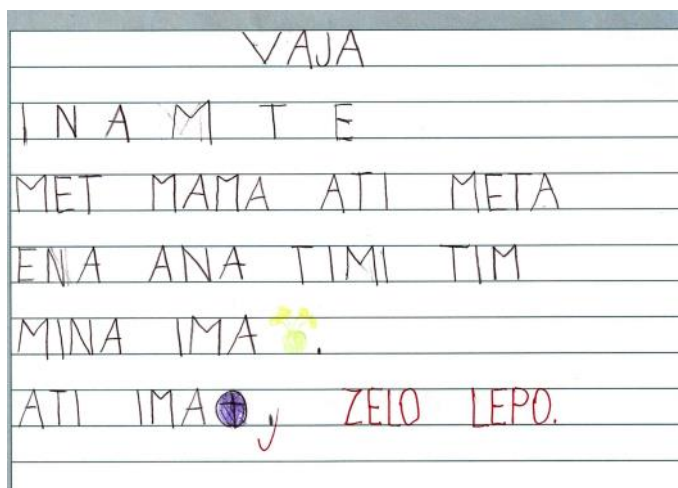 VAJA
I N A M T E
MET MAMA ATI META
ENA ANA TIMI TIM
MINA IMA .
ATI IMA . ZELO LEPO.